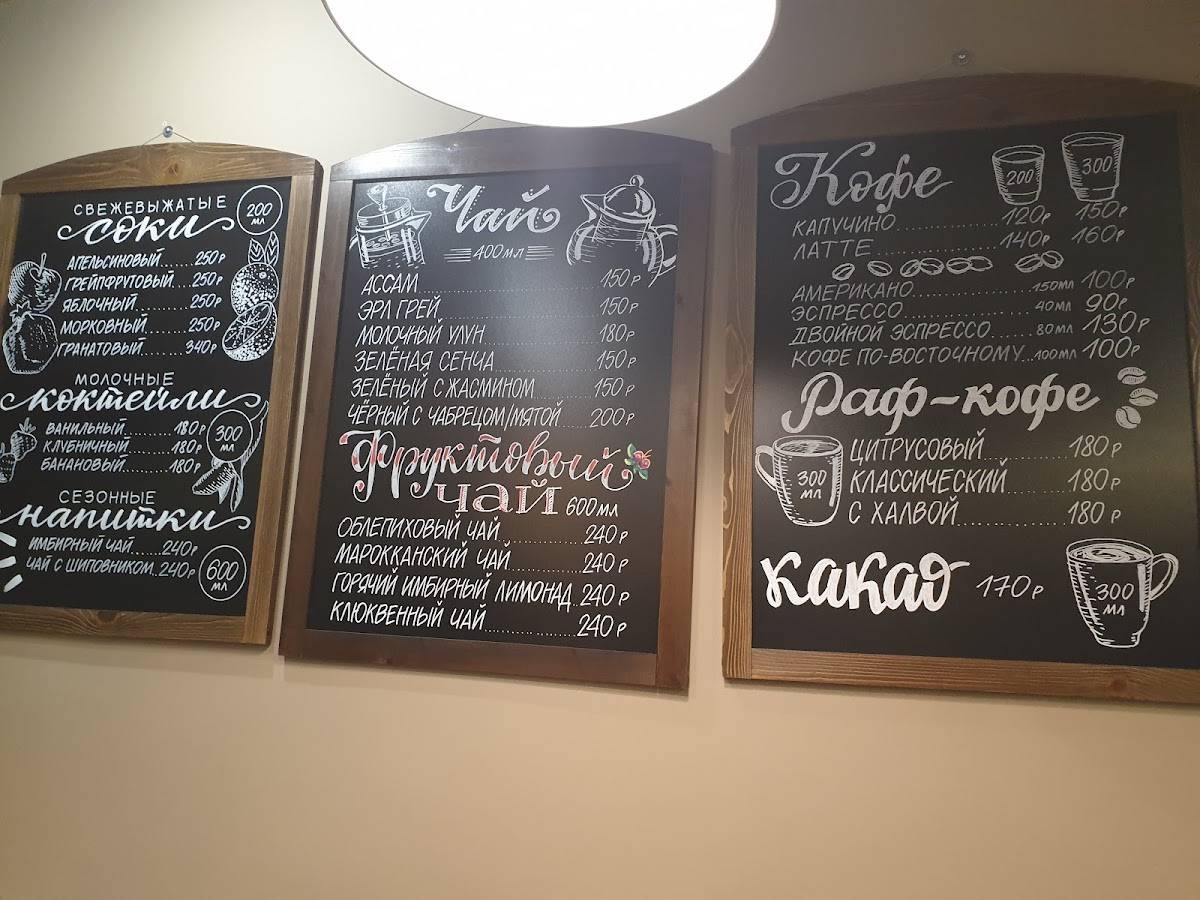 СВЕЖЕВЫЖАТЫЕ
СОКИ
200 МЛ
АПЕЛЬСИНОВЫЙ......250 Р
ГРЕЙПФРУТОВЫЙ...250 Р
ЯБЛОЧНЫЙ..........250 Р
МОРКОВНЫЙ.......250 Р
ГРАНАТОВЫЙ.......340 Р
МОЛОЧНЫЕ
КОКТЕЙЛИ
300 МЛ
ВАНИЛЬНЫЙ..........180 Р
КЛУБНИЧНЫЙ........180 Р
БАНАНОВЫЙ..........180 Р
СЕЗОННЫЕ
НАПИТКИ
ИМБИРНЫЙ ЧАЙ......240 Р
ЧАЙ С ШИПОВНИКОМ..240 Р
600 МЛ
Чай
400 МЛ
АССАМ..........150 Р
ЭРЛ ГРЕЙ..........150 Р
МОЛОЧНЫЙ УЛУН..........180 Р
ЗЕЛЁНАЯ СЕНЧА..........150 Р
ЗЕЛЁНЫЙ С ЖАСМИНОМ..........150 Р
ЧЁРНЫЙ С ЧАБРЕЦОМ/МЯТОЙ.....200 Р
Фруктовый
ЧАЙ 600 МЛ
ОБЛЕПИХОВЫЙ ЧАЙ..........240 Р
МАРОККАНСКИЙ ЧАЙ..........240 Р
ГОРЯЧИЙ ИМБИРНЫЙ ЛИМОНАД..240 Р
КЛЮКВЕННЫЙ ЧАЙ..........240 Р
Кофе 200 300
КАПУЧИНО..........120 Р 150 Р
ЛАТТЕ..........140 Р 160 Р
АМЕРИКАНО..........150 МЛ 100 Р
ЭСПРЕССО..........40 МЛ 90 Р
ДВОЙНОЙ ЭСПРЕССО.....80 МЛ 130 Р
КОФЕ ПО-ВОСТОЧНОМУ...100 МЛ 100 Р
Раф-кофе
300 МЛ
ЦИТРУСОВЫЙ..........180 Р
КЛАССИЧЕСКИЙ..........180 Р
С ХАЛВОЙ..........180 Р
какао 170 Р
300 МЛ